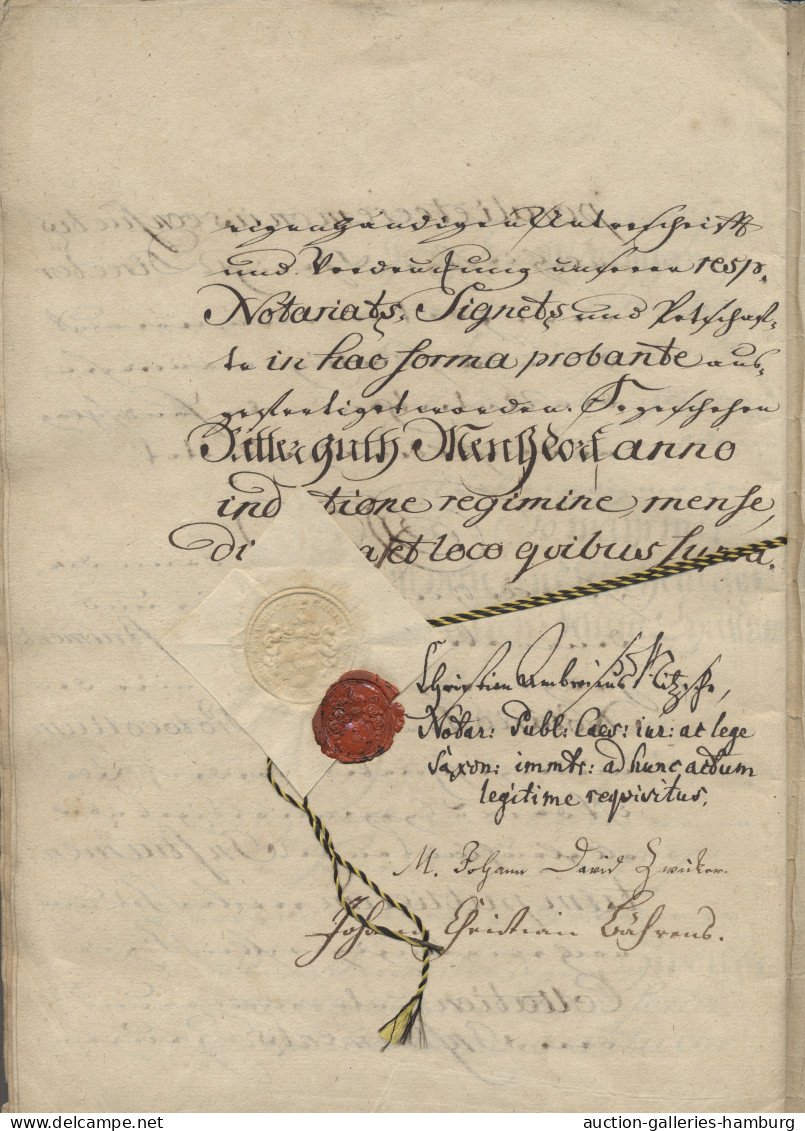 eigenhändigen Unterschrifft
und Vordrukkung unserer resp.
Notariats-Signets und Petschaf-
te in hac forma probante aus-
gefertiget worden. So geschehen
Ritterguth anno
ind tione regimine, mense,
di et loco qvibus supra.
Christian Nitzsche,
Notar: Publ: Caes: iur: ac lege
Saxon: immtr: ad hunc actum
legitime reqvisitus.
M. Johann David Zwicker.
Johann Christian Bährens.
auction-galleries-hamburg